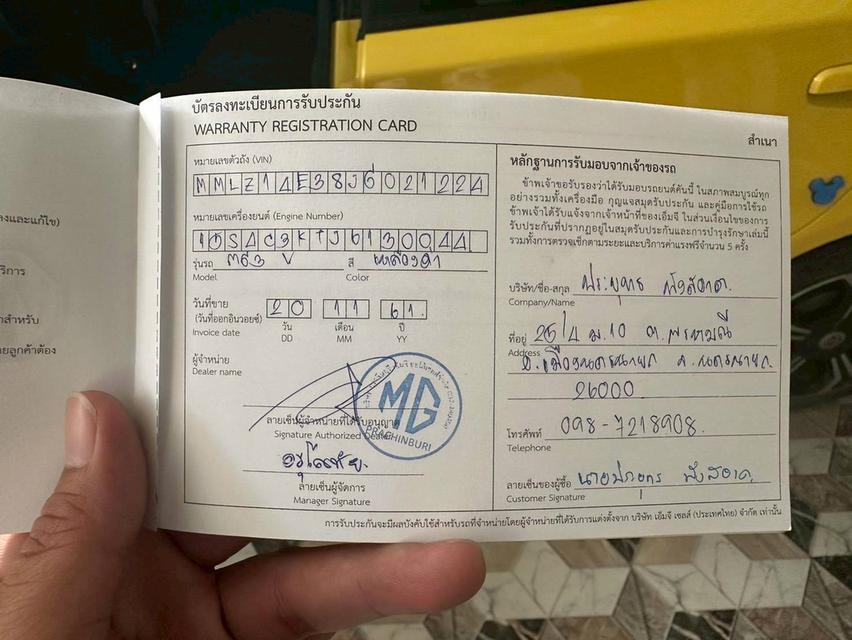 งและแก้ไข)
ริการ
าสำหรับ
ยลูกค้าต้อง
บัตรลงทะเบียนการรับประกัน
WARRANTY REGISTRATION CARD
สำเนา
หมายเลขตัวถัง (VIN)
MMLZ14E38J6021224
หมายเลขเครื่องยนต์ (Engine Number)
15S4C3KTJ6130044
รุ่นรถ MG3 V สี เหลืองดำ
Model Color
วันที่ขาย 20 11 61.
(วันที่ออกอินวอยซ์) วัน เดือน ปี
Invoice date DD MM YY
ผู้จำหน่าย
Dealer name
MG
PRACHINBURI
ลายเซ็นผู้จำหน่ายที่ได้รับอนุญาต
Signature Authorized Dealer
ลายเซ็นผู้จัดการ
Manager Signature
หลักฐานการรับมอบจากเจ้าของรถ
ข้าพเจ้าขอรับรองว่าได้รับมอบรถยนต์คันนี้ ในสภาพสมบูรณ์ทุก
อย่างรวมทั้งเครื่องมือ กุญแจสมุดรับประกัน และคู่มือการใช้รถ
ข้าพเจ้าได้รับแจ้งจากเจ้าหน้าที่ของเอ็มจี ในส่วนเงื่อนไขของการ
รับประกันที่ปรากฏอยู่ในสมุดรับประกันและการบำรุงรักษาเล่มนี้
รวมทั้งการตรวจเช็กตามระยะและบริการค่าแรงฟรีจำนวน 5 ครั้ง
บริษัท/ชื่อ-สกุล ประยุทธ ฟังสอาด.
Company/Name
ที่อยู่ 25/4 ม.10 ต.พรหมณี
Address อ.เมืองนครนายก จ.นครนายก
26000
โทรศัพท์ 098-7218908.
Telephone
ลายเซ็นของผู้ซื้อ
Customer Signature
การรับประกันจะมีผลบังคับใช้สำหรับรถที่จำหน่ายโดยผู้จำหน่ายที่ได้รับการแต่งตั้งจาก บริษัท เอ็มจี เซลส์ (ประเทศไทย) จำกัด เท่านั้น